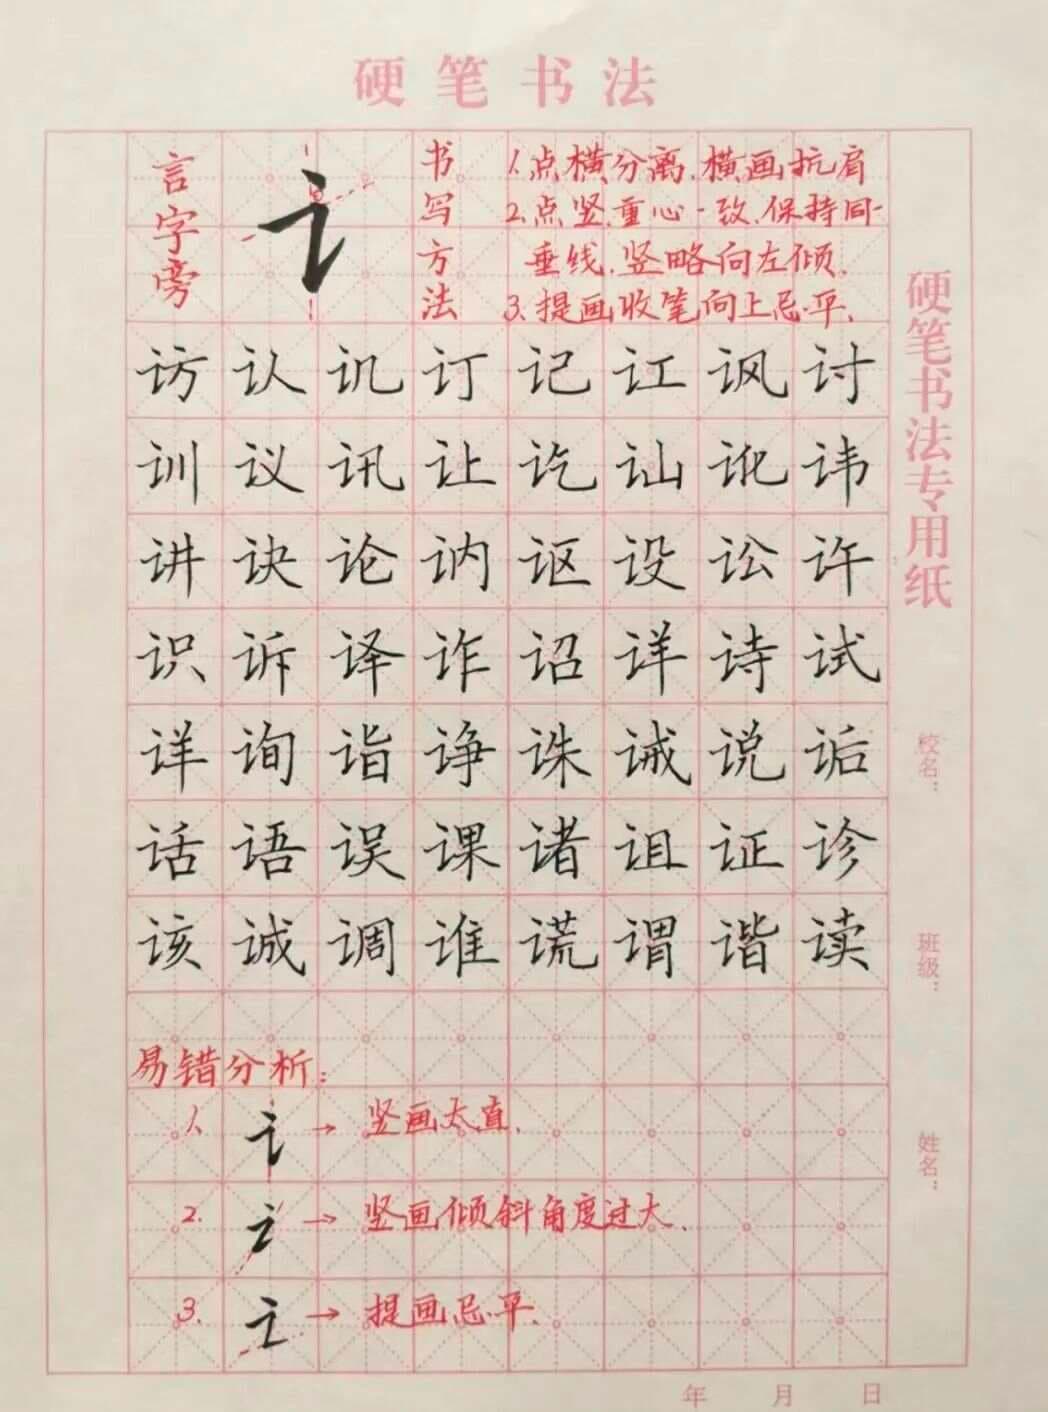 硬笔书法
言字旁
讠
书写方法
1.点横分离.横画抗肩
2.点竖重心一致.保持同一
垂线.竖略向左倾.
3.提画收笔向上忌平.
访认讥订记讧讽讨
训议讯让讫讪讹讳
讲诀论讷讴设讼许
识诉译诈诏详诗试
详询诣诤诛诫说诟
话语误课诸诅证诊
该诚调谁谎谓谐读
易错分析:
1. 讠→竖画太直.
2. 讠→竖画倾斜角度过大.
3. 讠→提画忌平.
硬笔书法专用纸
校名:
班级:
姓名:
年 月 日